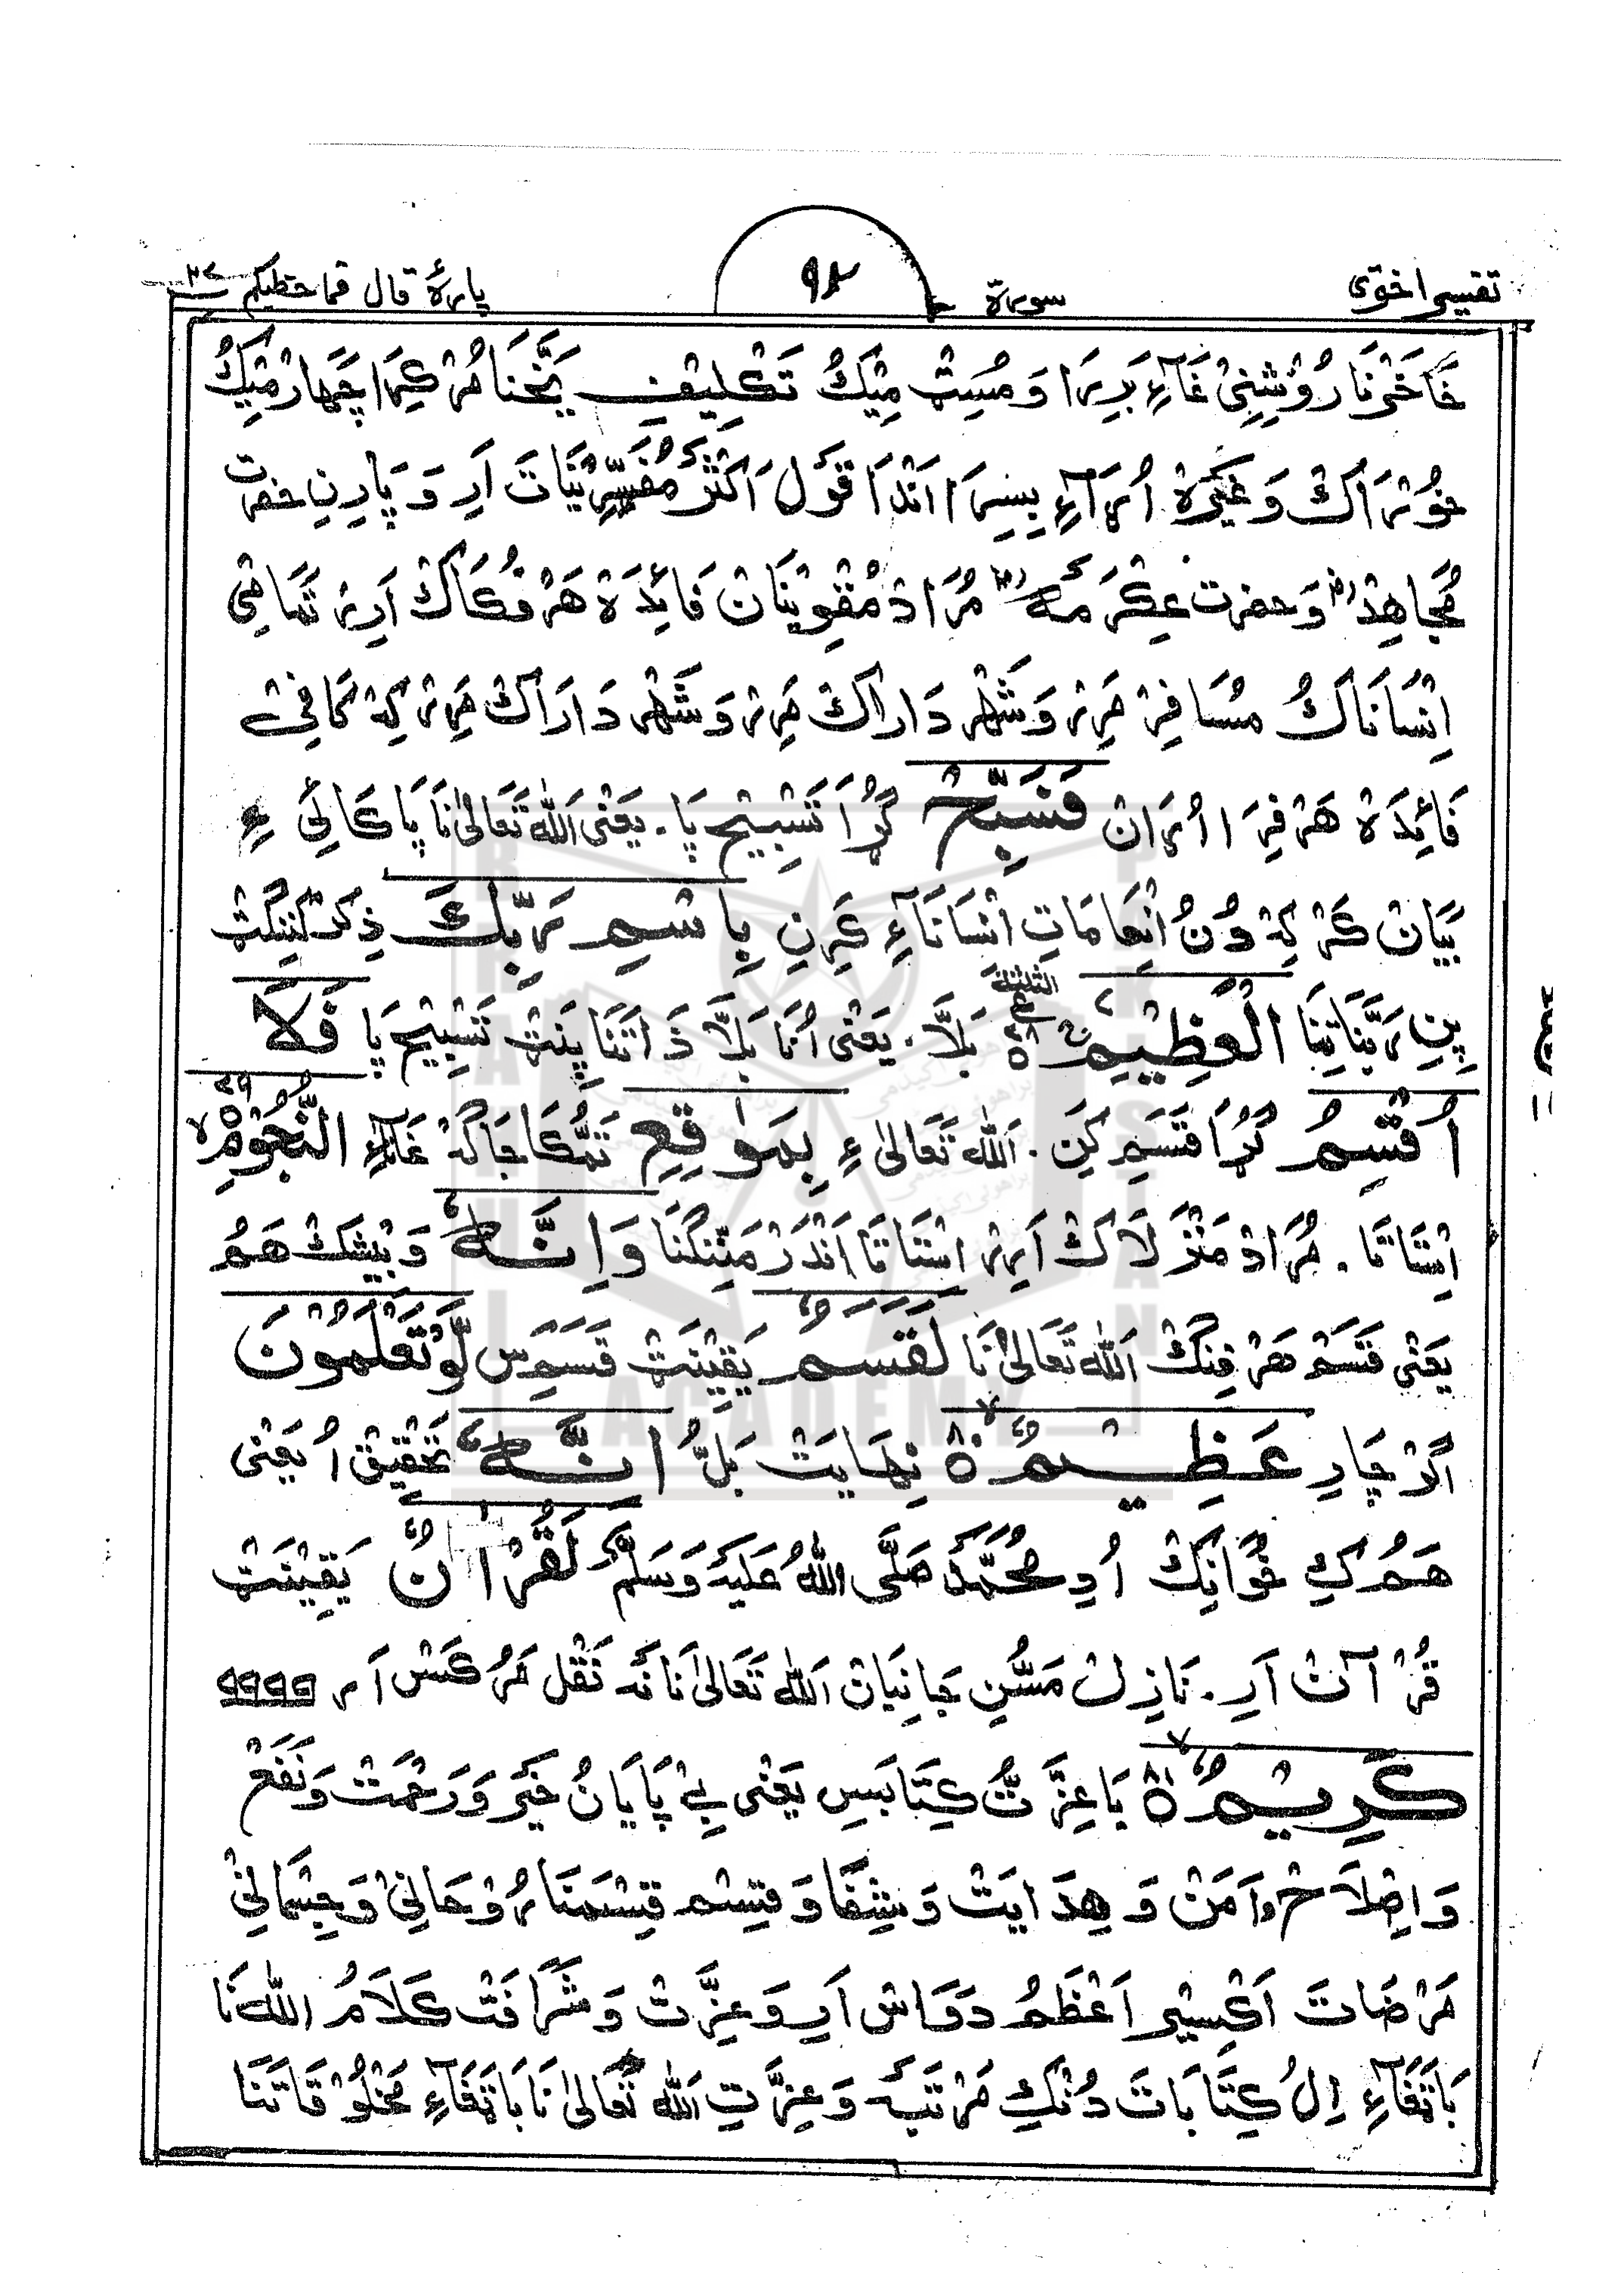 تفسیر اختوی
سورة
۹۴
پارۂ قال فما خطبکم ۲۷
خَاخَرْنَا رُوْشِنِیْ غَآءِ بَرِیرَا وَ مُسِتْ مِیْکُ تَکْلِیْفِ
خُوْرَاکْ وَ غَیْرَہْ اُرَآءِ بِسِرَ اَنْدَا قَوْل اَکْثَرْ مُفَسِّرِیْنَاتَ اَرِ وَ پَارِنِ حضرت
مُجَاهِدْ وَ حضرت عِکْرَمَه مُرَادْ مُقْوِیْنَانْ فَائِدَہْ هَرْفُکَاکْ اَرِیْر تَمَامِیْ
اِنْسَانَاکُ مُسَافِرْ مَرِیْر وَ شَهْر دَارَاکْ مَرِیْر وَ شَهْر دَارَاکْ مَرِیْر کِہْ کَافِیْ
فَائِدَہْ هَرْفِرَا اُرَانْ فَسَبِّحْ گُڑَا تَسْبِیْح پَا۔ یَعْنٰی اَللّٰه تَعَالیٰ نَا پَاکَائِی ءِ
بَیَانْ کَرْ کِہْ دُنُ اِنْعَامَاتِ اِنْسَانَاءِ کَرِنِ بِاسْمِ رَبِّكَ ذِکْر کَنِنْگَتْ
پِنِ رَبَّنَا تِنَا الْعَظِیْمِ بَلَّا۔ یَعْنٰی اُنَا بَلَّا ذَاتَنَا پِنَتْ تَسْبِیْح پَا فَلَآ
اُقْسِمُ گُڑَا قَسَم کَنِ۔ اَللّٰه تَعَالیٰ ءِ بِمَوٰقِعِ تَمِّکَا جَاگَہْ غَآءِ النُّجُوْمِ
اِسْتَاتَا۔ مُرَادْ مَنْزَلَاکْ اَرِیْر اِسْتَاتَا اَنْدَرْ مَنِّنْگَنَا وَاِنَّهٗ وَ بِیْشَكْ هَمُ
یَعْنٰی قَسَمْ هَرْفِنْگْ اَللّٰه تَعَالیٰ نَا لَقَسَمٌ یَقِیْنَتْ قَسَمَس لَّوْ تَعْلَمُوْنَ
اَگَرْ چَارِ عَظِیْمٌ نِهَایَتْ بَلُّ اِنَّهٗ تَحْقِیْق اُ یَعْنٰی
هَمُ کِ خُوَانِكْ اُدِ مُحَمَّدْ صَلَّی اللّٰهُ عَلَیْهِ وَسَلَّمْ لَقُرْاٰنٌ یَقِیْنَتْ
قُرْآنْ اَرِ۔ نَازِلْ مَسُّنِ جَانِبَانْ اَللّٰه تَعَالیٰ نَا نَہ نَقْل مَرُ کَسْ اَر
کَرِیْمٌ بَاعِزَّتُ کِتَابَسِ یَعْنٰی بِے پَایَانُ خَیْر وَ رَحْمَتْ وَ نَفَعْ
وَ اِصْلَاحْ وَ اَمَنْ وَ هِدَایَتْ وَ شِفَا وَ قِسْم قِسْمَنَا رُوْحَانِیْ وَ جِسْمَانِیْ
مَرْضَاتَ اَکْسِیْر اَعْظَمُ دَوَاس اَرِ وَ عِزَّتْ وَ شَرَافَتْ کَلَامُ اللّٰه نَا
بَاتِقَآءِ اِلُ کِتَابَاتَ دُنْکِ مَرْتَبَه وَ عِزَّتِ اَللّٰه تَعَالیٰ نَا بَاتِقَآءِ مَخْلُوْقَاتَنَا